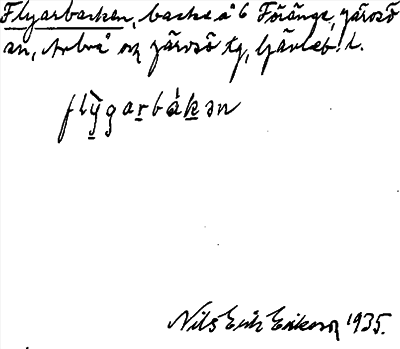 Flygarbacken, backe å 6 Föränge, Järvsö
sn, Arbrå och Järvsö tg, Gävleb. l.
flỳgarbákən
Nils Erik Eriksson 1935.